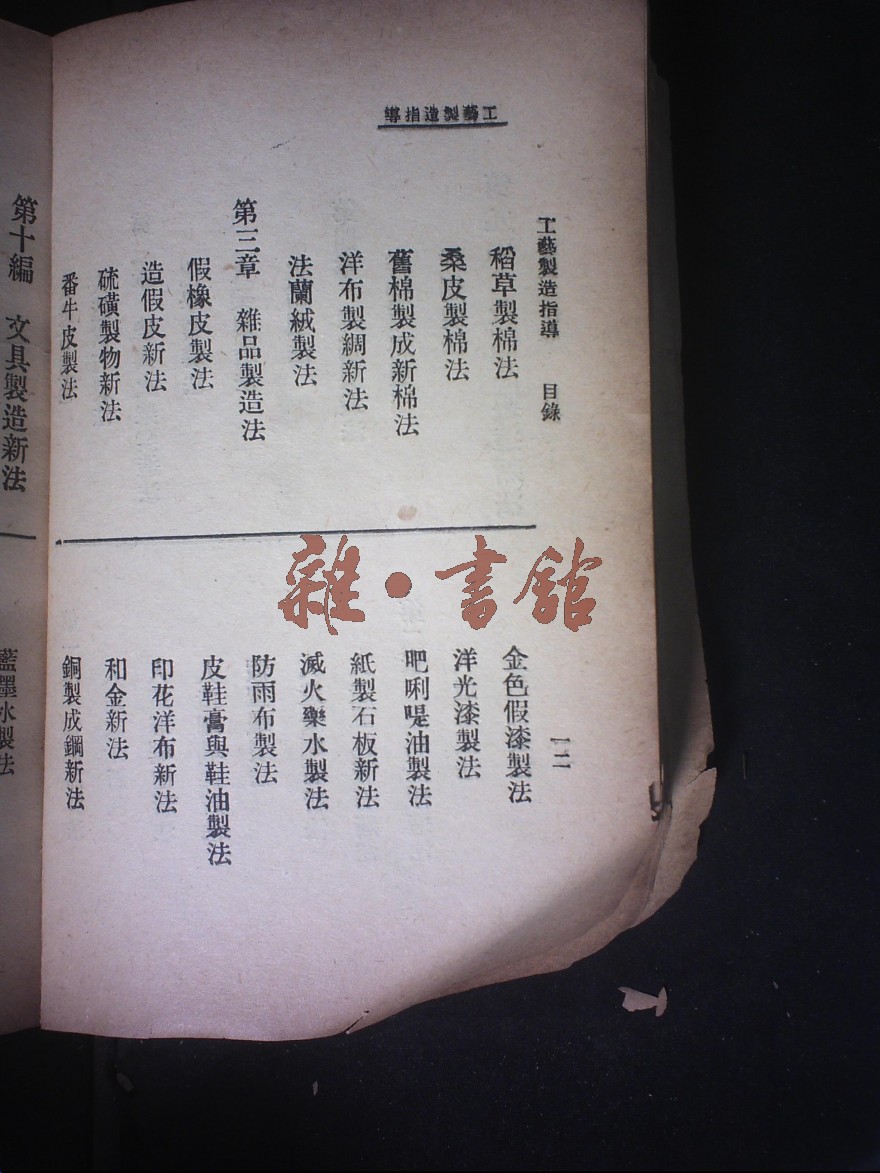 工藝製造指導
工藝製造指導　目錄
一二
稻草製棉法
桑皮製棉法
舊棉製成新棉法
洋布製綢新法
法蘭絨製法
第三章　雜品製造法
假橡皮製法
造假皮新法
硫磺製物新法
番牛皮製法
金色假漆製法
洋光漆製法
吧唎嗯油製法
紙製石板新法
滅火藥水製法
防雨布製法
皮鞋膏與鞋油製法
印花洋布新法
和金新法
銅製成鋼新法
第十編　文具製造新法
藍墨水製法
雜·書館